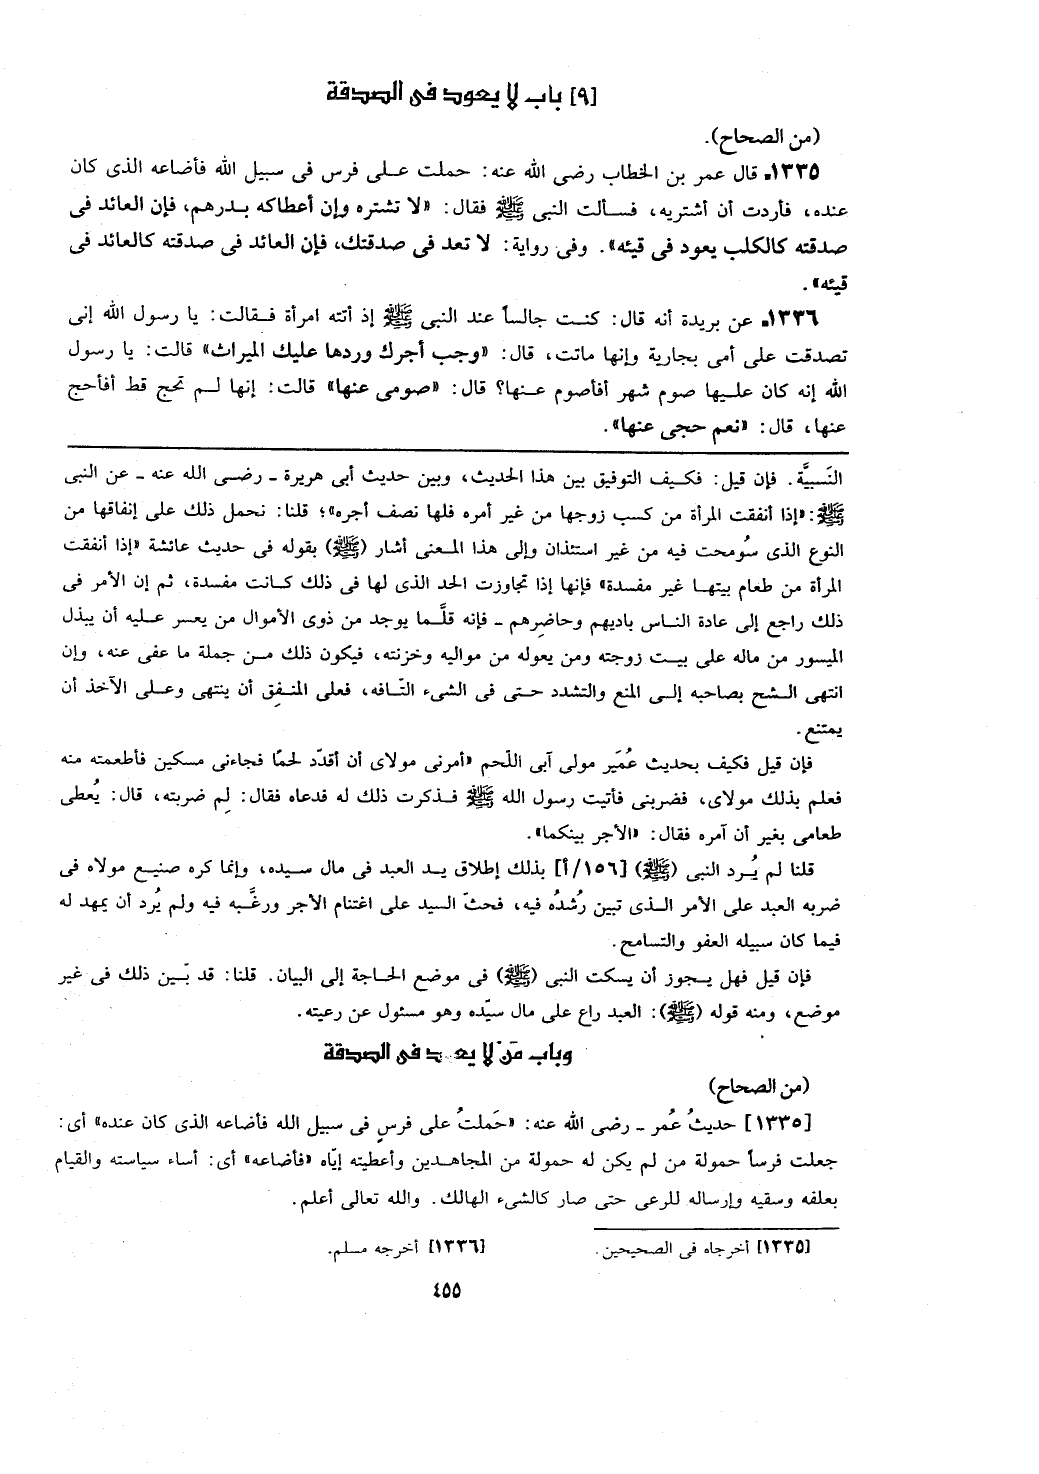 [٩] باب لا يعود فى الصدقة
(من الصحاح).
١٣٣٥ـ قال عمر بن الخطاب رضى الله عنه: حملت على فرس فى سبيل الله فأضاعه الذى كان
عنده، فأردت أن أشتريه، فسألت النبى ﷺ فقال: «لا تشتره وإن أعطاكه بدرهم، فإن العائد فى
صدقته كالكلب يعود فى قيئه». وفى رواية: لا تعد فى صدقتك، فإن العائد فى صدقته كالعائد فى
قيئه».
١٣٣٦ـ عن بريدة أنه قال: كنت جالساً عند النبى ﷺ إذ أتته امرأة فقالت: يا رسول الله إنى
تصدقت على أمى بجارية وإنها ماتت، قال: «وجب أجرك وردها عليك الميراث» قالت: يا رسول
الله إنه كان عليها صوم شهر أفأصوم عنها؟ قال: «صومى عنها» قالت: إنها لم تحج قط أفأحج
عنها، قال: «نعم حجى عنها».
النَسبيَّة. فإن قيل: فكيف التوفيق بين هذا الحديث، وبين حديث أبى هريرة ـ رضى الله عنه ـ عن النبى
ﷺ: «إذا أنفقت المرأة من كسب زوجها من غير أمره فلها نصف أجره»؛ قلنا: نحمل ذلك على إنفاقها من
النوع الذى سُومحت فيه من غير استئذان وإلى هذا المعنى أشار (ﷺ) بقوله فى حديث عائشة «إذا أنفقت
المرأة من طعام بيتها غير مفسدة» فإنها إذا تجاوزت الحد الذى لها فى ذلك كانت مفسدة، ثم إن الأمر فى
ذلك راجع إلى عادة الناس باديهم وحاضِرهم ـ فإنه قلَّما يوجد من ذوى الأموال من يعسر عليه أن يبذل
الميسور من ماله على بيت زوجته ومن يعوله من مواليه وخزنته، فيكون ذلك من جملة ما عفى عنه، وإن
انتهى الشح بصاحبه إلى المنع والتشدد حتى فى الشىء التّافه، فعلى المنفِق أن ينتهى وعلى الآخذ أن
يمتنع.
فإن قيل فكيف بحديث عُمَير مولى آبى اللّحم «أمرنى مولاى أن أقدّد لحمًا فجاءنى مسكين فأطعمته منه
فعلم بذلك مولاى، فضربنى فأتيت رسول الله ﷺ فذكرت ذلك له فدعاه فقال: لِم ضربته، قال: يُعطى
طعامى بغير أن آمره فقال: «الأجر بينكما».
قلنا لم يُرد النبى (ﷺ) [١٥٦/أ] بذلك إطلاق يد العبد فى مال سيده، وإنما كره صنيع مولاه فى
ضربه العبد على الأمر الذى تبين رُشدُه فيه، فحثّ السيد على اغتنام الأجر ورغَّبه فيه ولم يُرد أن يمهد له
فيما كان سبيله العفو والتسامح.
فإن قيل فهل يجوز أن يسكت النبى (ﷺ) فى موضع الحاجة إلى البيان. قلنا: قد بّين ذلك فى غير
موضع، ومنه قوله (ﷺ): العبد راع على مال سيّده وهو مسئول عن رعيته.
وباب مَن لا يعود فى الصدقة
(من الصحاح)
[١٣٣٥] حديثُ عُمر ـ رضى الله عنه: «حَملتُ على فرسٍ فى سبيل الله فأضاعه الذى كان عنده» أى:
جعلت فرساً حمولة من لم يكن له حمولة من المجاهدين وأعطيته إيّاه «فأضاعه» أى: أساء سياسته والقيام
بعلفه وسقيه وإرساله للرعى حتى صار كالشىء الهالك. والله تعالى أعلم.
[١٣٣٥] أخرجاه فى الصحيحين. [١٣٣٦] أخرجه مسلم.
٤٥٥